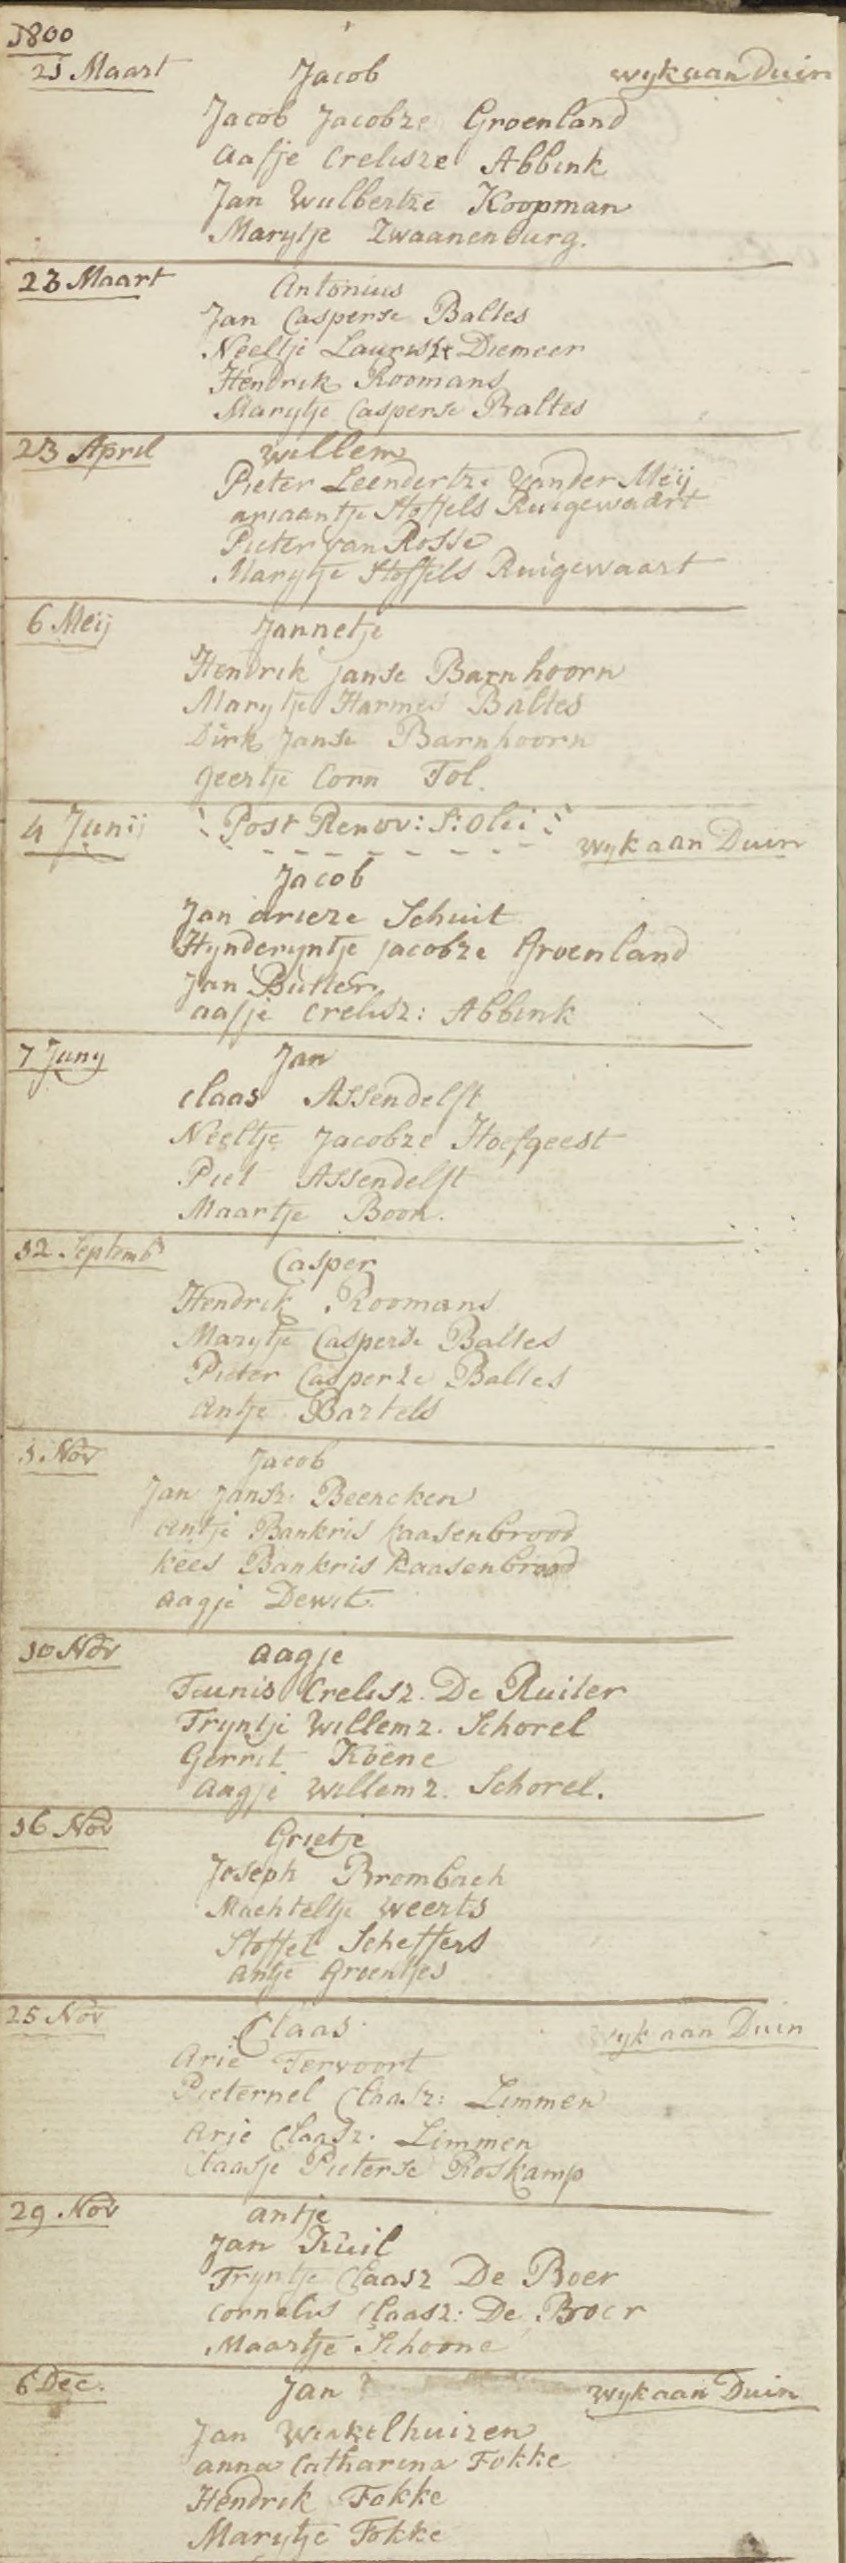 1800
21 Maart Jacob wijk aan Duin
Jacob Jacobze Groenland
Aafje Crelisze Abbink
Jan Wulbertze Koopman
Marijtje Zwaanenburg.
23 Maart Antonius
Jan Casperse Baltes
Neeltje Laurisze Diemeer
Hendrik Roomans
Marijtje Casperse Baltes
23 April Willem
Pieter Leendertze vander Meij
ariaantje Stoffels Ruigewaart
Pieter van Rosse
Marijtje Stoffels Ruigewaart
6 Meij Jannetje
Hendrik Janse Barnhoorn
Marijtje Harmes Baltes
Dirk Janse Barnhoorn
Geertje Corn Tol.
4 Junij Post Renov: S: Olei wijk aan Duin
Jacob
Jan arieze Schuit
Hijnderijntje jacobze Groenland
Jan Butter
aafje Crelisz: Abbink
7 Junij Jan
Claas Assendelft
Neeltje Jacobze Hoefgeest
Piet Assendelft
Maartje Boon.
12 Septemb Casper
Hendrik Roomans
Marijtje Casperse Baltes
Pieter Casperze Baltes
Antje Bartels
1. Nov Jacob
Jan Jansz. Beencken
Antje Bankris kaasenbrood
kees Bankris kaasenbrood
aagje Dewit.
10 Nov aagje
Teunis Crelisz. De Ruiter
Trijntje Willemz. Schorel
Gerrit Koene
Aagje Willemz. Schorel.
16 Nov Grietje
Joseph Brombach
Machteltje Weerts
Stoffel Scheffers
Antje Groentjes
25 Nov Claas wijk aan Duin
Arie Tervoort
Pieternel Claasz: Limmen
Arie Claasz. Limmen
Claasje Pieterse Roskamp
29 Nov antje
Jan Kuil
Trijntje Claasz De Boer
Cornelis Claasz: De Boer
Maartje Schoone
6 Dec. Jan wijk aan Duin
Jan Winkelhuizen
anna Catharina Fokke
Hendrik Fokke
Marijtje Fokke